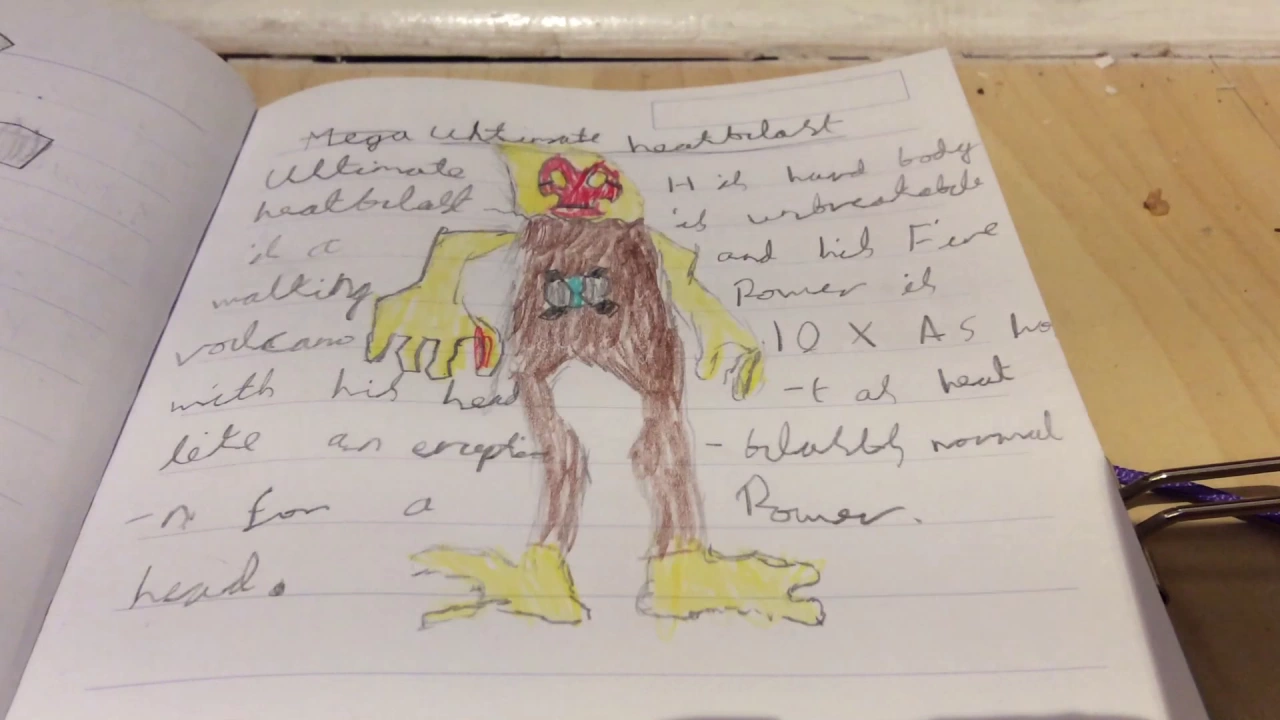 Mega Ultimate heatblast
Ultimate
heatblast
is a
walking
volcano
with his head
like an eruptio
-n for a
head.
H is hard body
is unbreakable
and his Fire
Power is
10 X AS ho
-t as heat
-blasts normal
Power.